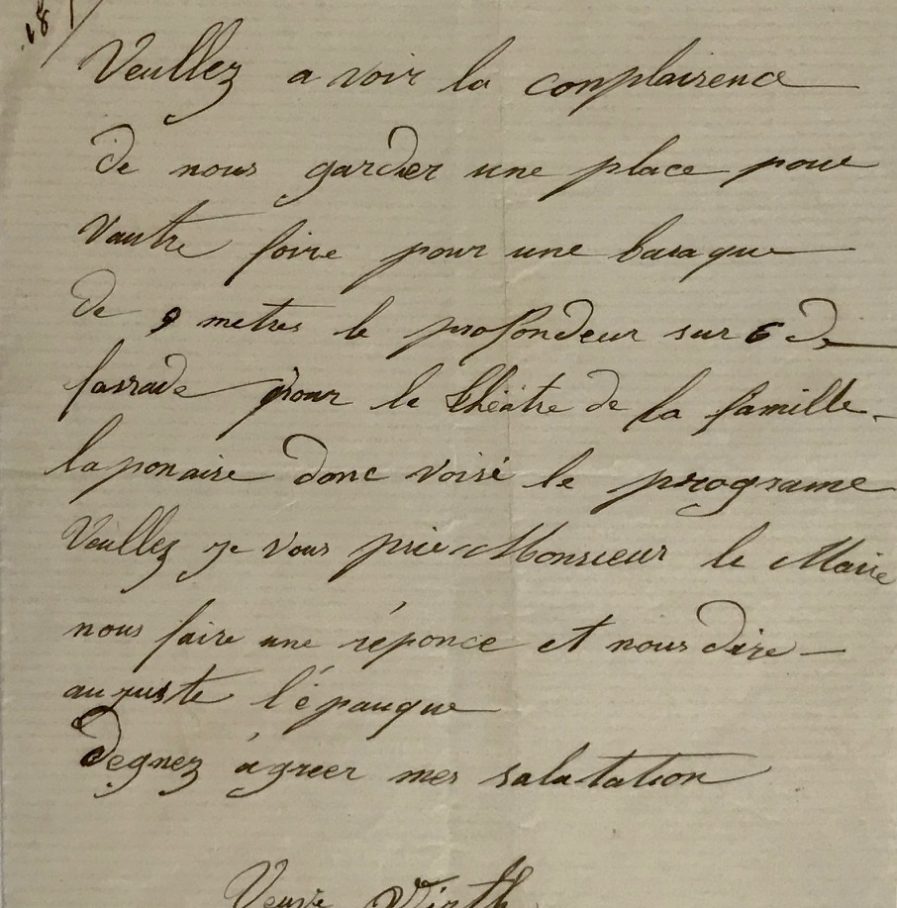 18
Veullez a voir la complairence
de nous garder une place pour
vautre foire pour une baraque
de 9 metres le profondeur sur 6 de
fassade pour le théatre de la famille
laponaire donc voisi le programe
Veullez je vous prie Monsieur le Maire
nous faire une réponce et nous dire
au juste l'épauque
degnez agreer mes salutation
Veuve Wirth